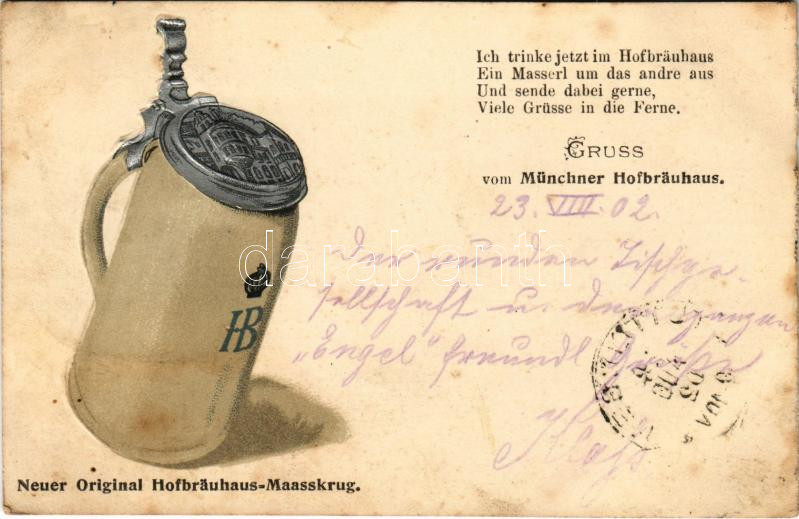 Ich trinke jetzt im Hofbräuhaus
Ein Masserl um das andre aus
Und sende dabei gerne,
Viele Grüsse in die Ferne.
GRUSS
vom Münchner Hofbräuhaus.
23. VIII. 02.
Der runden Tischge-
sellschaft u. dem ganzen
„Engel" freundl Grüße
HB
darabanth
Neuer Original Hofbräuhaus-Maasskrug.